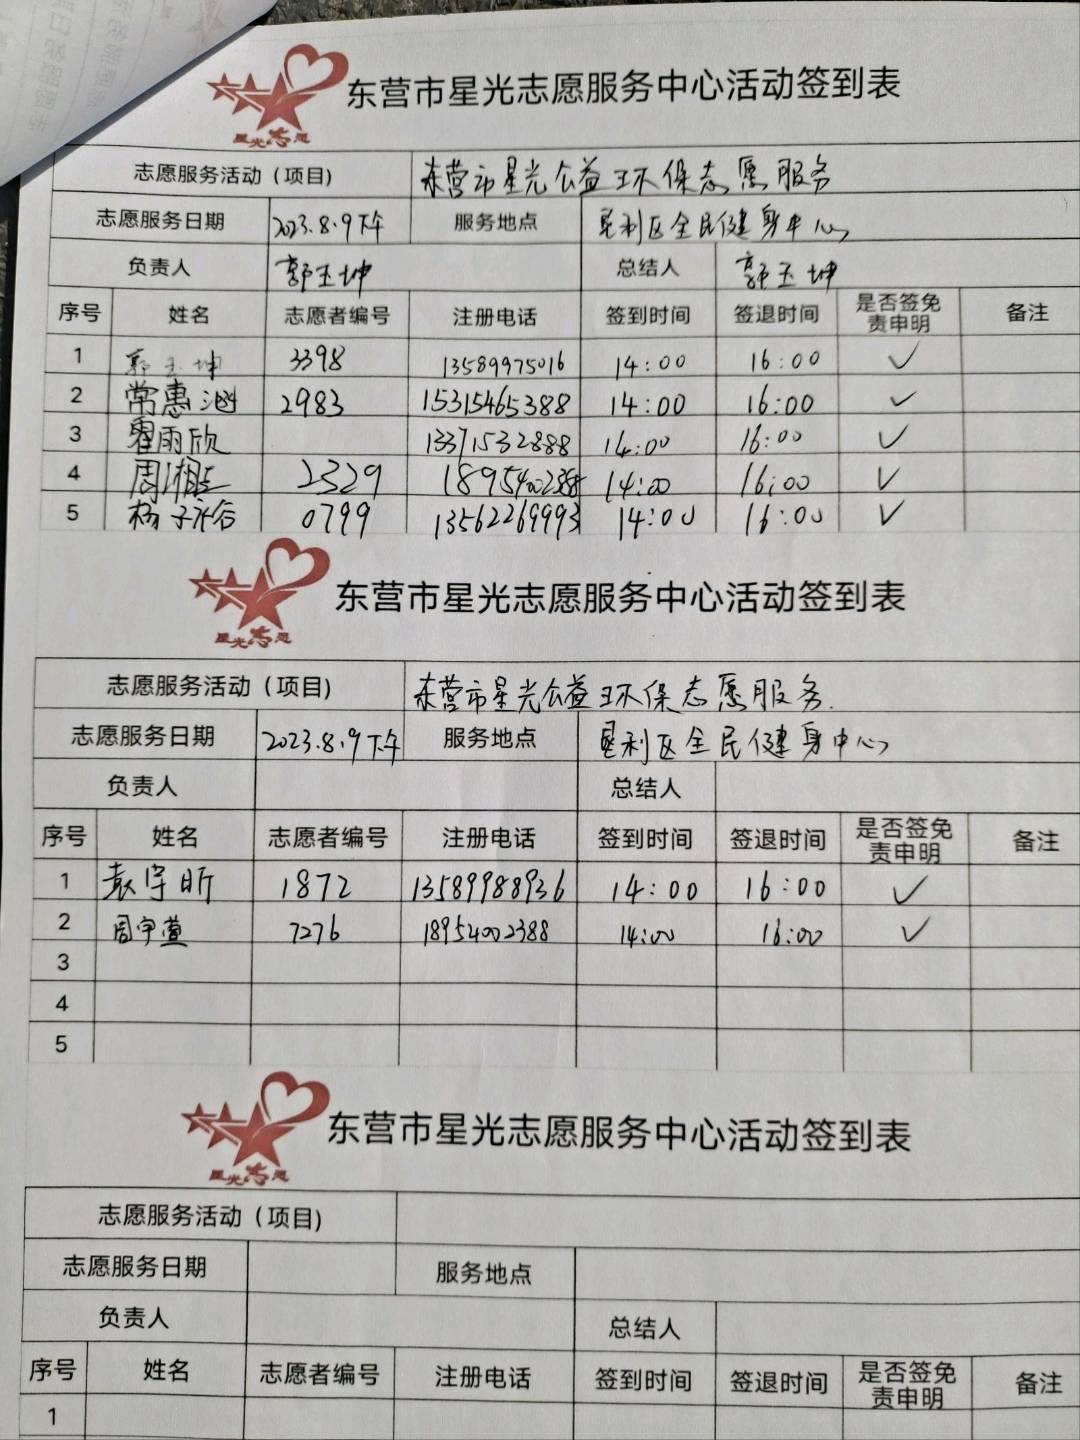 星光志愿
东营市星光志愿服务中心活动签到表
志愿服务活动（项目） 东营市星光公益环保志愿服务
志愿服务日期 2023.8.9下午 服务地点 垦利区全民健身中心
负责人 郭玉坤 总结人 郭玉坤
序号 姓名 志愿者编号 注册电话 签到时间 签退时间 是否签免责申明 备注
1 郭玉坤 3398 13589975016 14:00 16:00 ✓
2 常惠 2983 15315465388 14:00 16:00 ✓
3 翟雨欣 13371532888 14:00 16:00 ✓
4 周湘 2329 14:00 16:00 ✓
5 杨子 0799 13562269993 14:00 16:00 ✓
星光志愿
东营市星光志愿服务中心活动签到表
志愿服务活动（项目） 东营市星光公益环保志愿服务.
志愿服务日期 2023.8.9下午 服务地点 垦利区全民健身中心
负责人 总结人
序号 姓名 志愿者编号 注册电话 签到时间 签退时间 是否签免责申明 备注
1 袁宇昕 1872 13589988936 14:00 16:00 ✓
2 周宇萱 7276 18954002388 14:00 16:00 ✓
3
4
5
星光志愿
东营市星光志愿服务中心活动签到表
志愿服务活动（项目）
志愿服务日期 服务地点
负责人 总结人
序号 姓名 志愿者编号 注册电话 签到时间 签退时间 是否签免责申明 备注
1